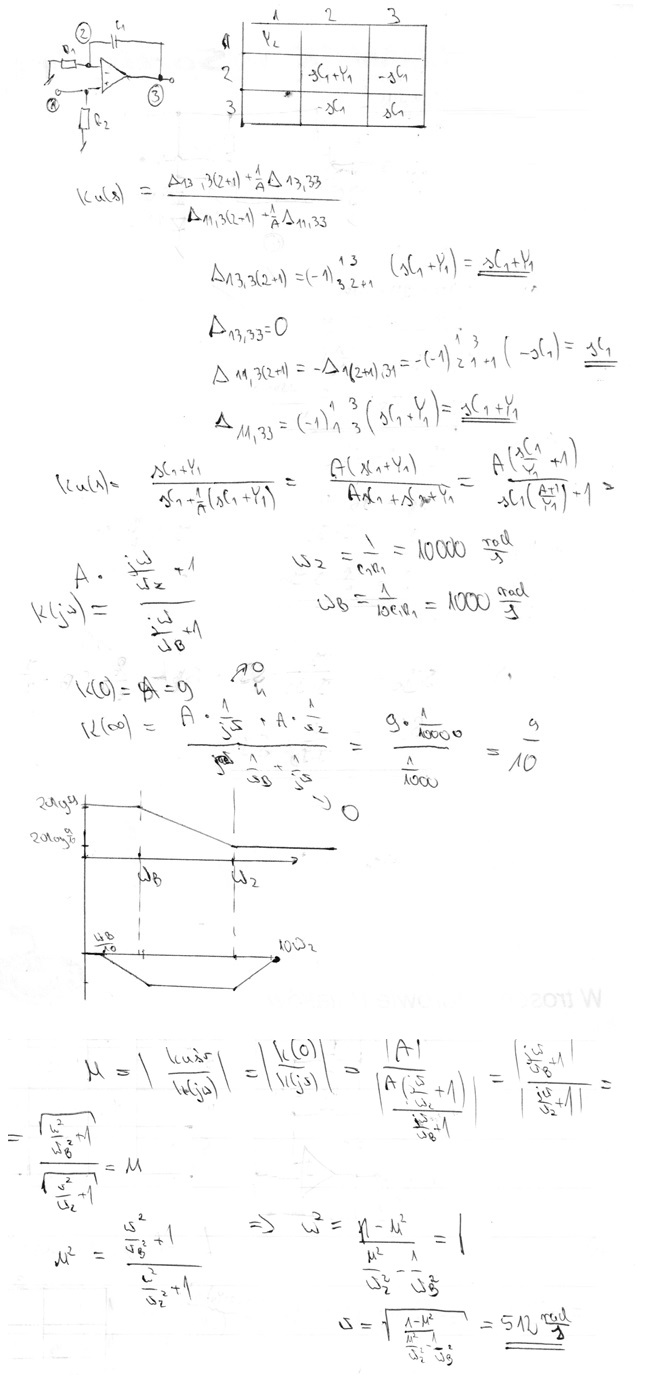 ② C₁
R₁
③
①
R₂
1 2 3
1 Y₂
2 sC₁+Y₁ -sC₁
3 -sC₁ sC₁
Ku(s) = (Δ13,3(2+1) + 1/A Δ13,33) / (Δ11,3(2+1) + 1/A Δ11,33)
Δ13,3(2+1) = (-1) 1 3 3 2+1 (sC₁+Y₁) = sC₁+Y₁
Δ13,33 = 0
Δ11,3(2+1) = -Δ1(2+1),31 = -(-1) 1 3 2 1+1 (-sC₁) = sC₁
Δ11,33 = (-1) 1 3 1 3 (sC₁+Y₁) = sC₁+Y₁
Ku(s) = (sC₁+Y₁) / (sC₁+1/A(sC₁+Y₁)) = A(sC₁+Y₁) / (AsC₁+sC₁+Y₁) = A(sC₁/Y₁+1) / (sC₁(A+1/Y₁)+1) =
K(jω) = A · (jω/ωz+1) / (jω/ωB+1)
ωz = 1/C₁R₁ = 10000 rad/s
ωB = 1/10C₁R₁ = 1000 rad/s
K(0) = A = 9
K(∞) = (A · 1/jω + A · 1/ωz) / (1/ωB + 1/jω) = (9 · 1/10000) / (1/1000) = 9/10
→0
→0
20log9
20log
ωB ωz
ωB/10 10ωz
W tros
M = |Kuśr/K(jω)| = |K(0)/K(jω)| = |A| / |A(jω/ωz+1)/(jω/ωB+1)| = |jω/ωB+1| / |jω/ωz+1| =
= √(ω²/ωB²+1) / √(ω²/ωz²+1) = M
M² = (ω²/ωB²+1) / (ω²/ωz²+1) => ω² = (1-M²) / (M²/ωz² - 1/ωB²) = |
ω = √((1-M²) / (M²/ωz² - 1/ωB²)) = 512 rad/s